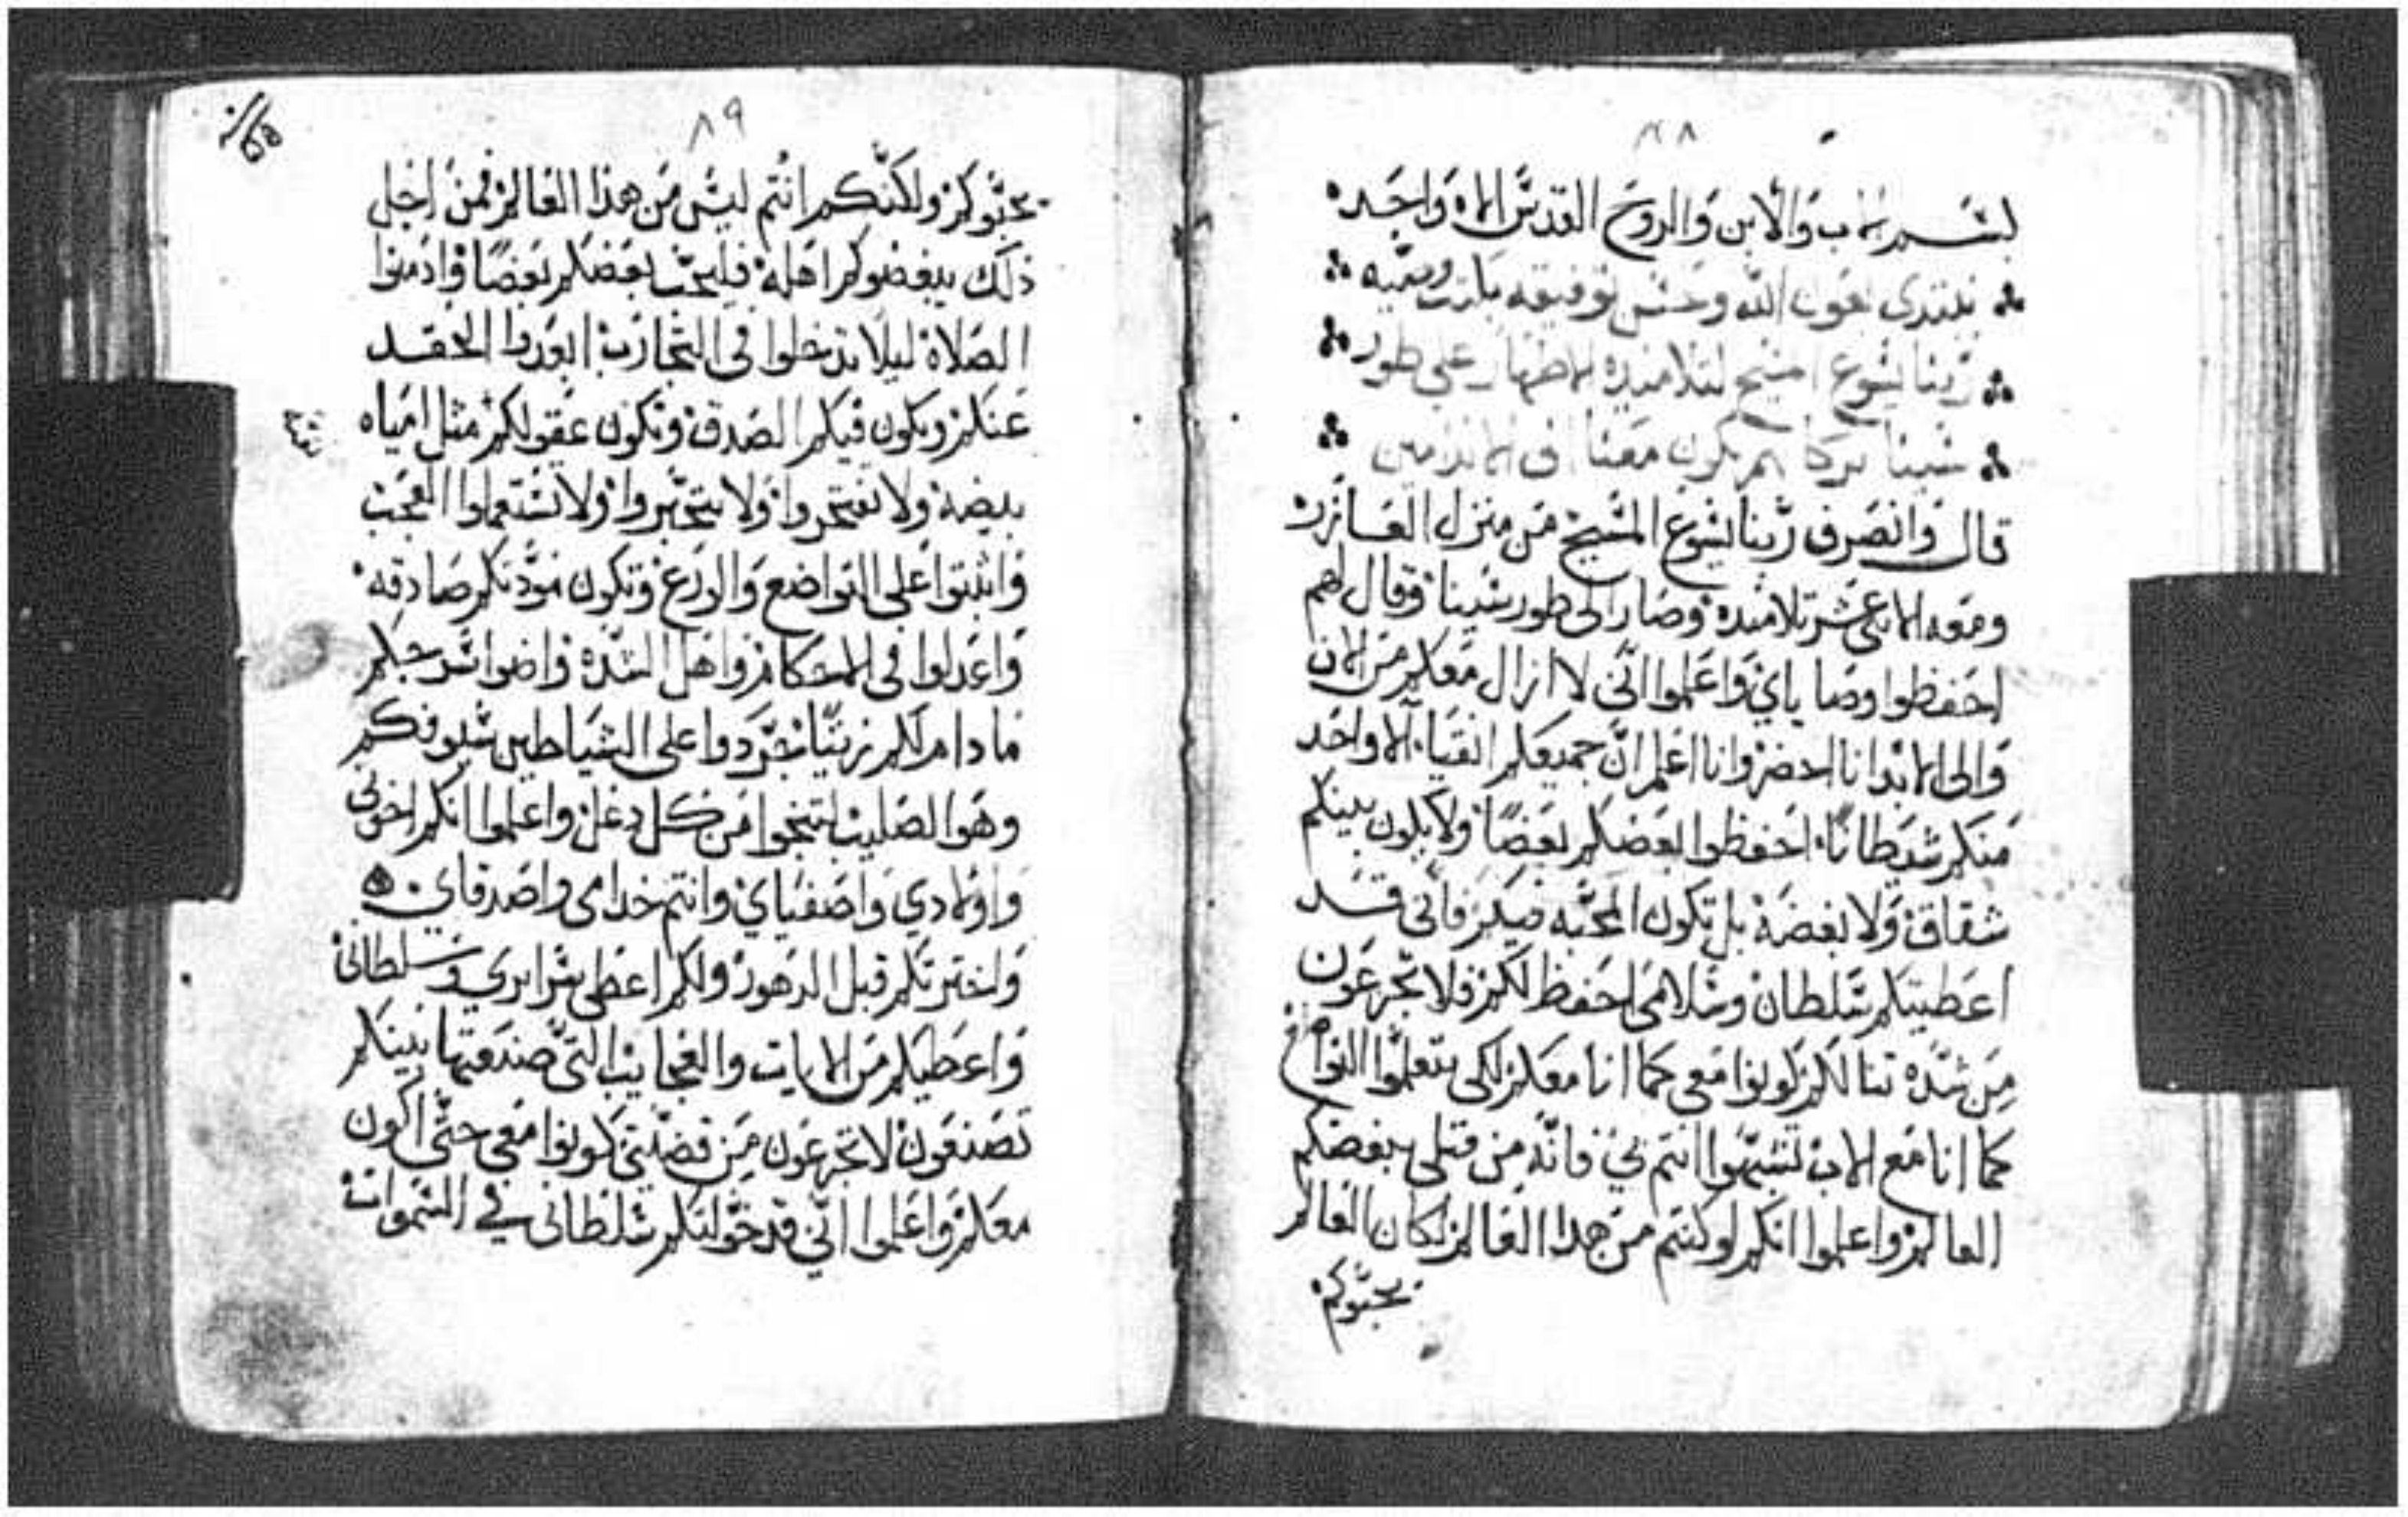 بسم الاب والابن والروح القدس الاه واحد
نبتدى بعون الله وحسن توفيقه
ربنا يسوع المسيح لتلاميذه الاطهار على طور
سينا بركاتهم تكون معنا امين
قال وانصرف ربنا يسوع المسيح من منزل العازر
ومعه تلاميذه وصار الى طور سينا وقال لهم
احفظوا وصاياي واعلموا انني لا ازال معكم من الان
والى الابد انا احضر وانا اعلم ان جميعكم انقيا الا واحد
منكم شيطانا احفظوا بعضكم بعضا ولا يكون بينكم
شقاق ولا بغضة بل تكون المحبه فيكم فاني قد
اعطيتكم سلطان وسلامي احفظ لكم فلا تجزعون
من شده لكم كونوا معي كما انا معكم لكى تتعلموا التواضع
كما انا مع الاب تشبهوا انتم بي فانه من قبلى يبغضكم
العالم واعلموا انكم لو كنتم من هدا العالم لكان العالم
يحبوكم
٨٩
يحبوكم ولكنكم انتم ليس من هذا العالم فمن اجل
ذلك يبغضوكم اهله فليحب بعضكم بعضا وادمنوا
الصلاة ليلا تدخلوا في التجارب ابعدوا الحقد
عنكم ويكون فيكم الصدق وتكون عقولكم مثل امياه
بيضه ولا تفتخروا ولا تتجبروا ولا تستعملوا العجب
واثبتوا على التواضع والورع وتكون مودتكم صادقه
واعدلوا في الاحكام واهل الشدة واضوا سرجكم
ما دام لكم زيتا تجردوا على الشياطين سيوفكم
وهوا الصليب من كل دغل واعلموا انكم اخوتى
واولادي واصفياي وانتم خدامى واصدقاي
واخترتكم قبل الدهور ولكم اعطى سرايري وسلطانى
واعطيكم من الايات والعجايب التي صنعتها بينكم
تصنعون لا تجزعون من قضيتي كونوا معي حتى اكون
معكم واعلموا انني قد خولتكم سلطانى في السموات